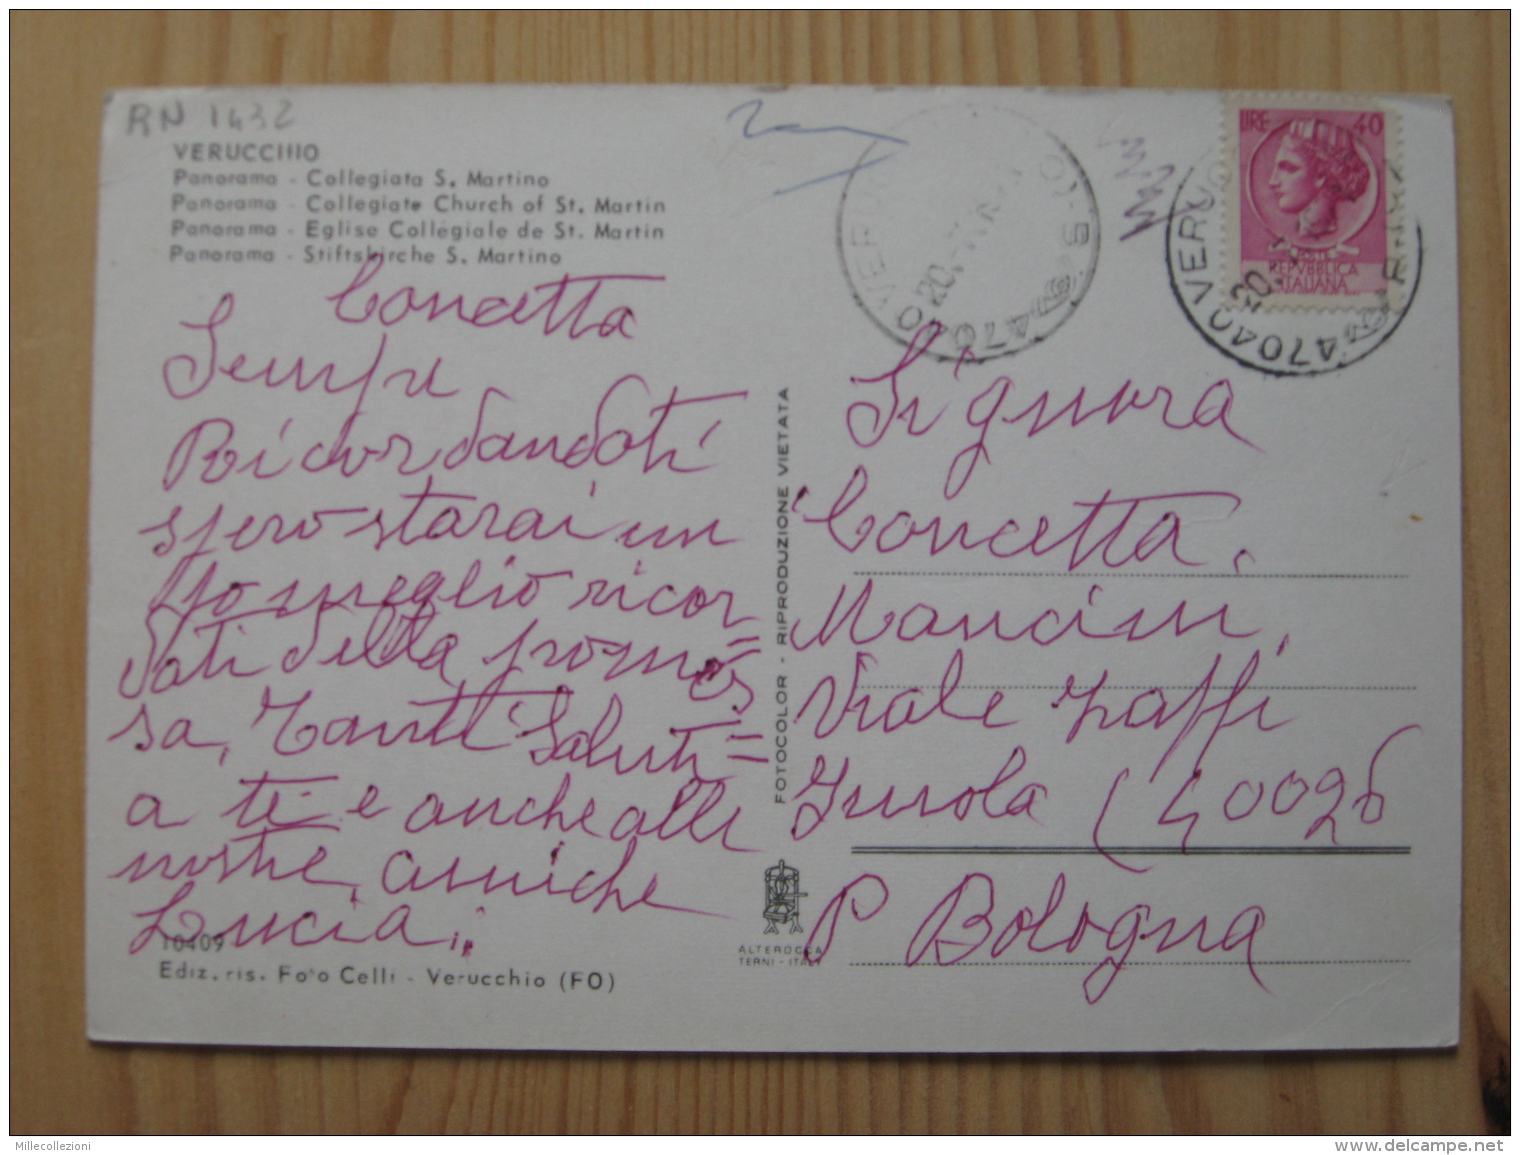 RN 1432
VERUCCHIO
Panorama - Collegiata S. Martino
Panorama - Collegiate Church of St. Martin
Panorama - Eglise Collégiale de St. Martin
Panorama - Stiftskirche S. Martino
Concetta
Sempre
Ricordandoti
spero starai un
po meglio ricor
dati della promes=
sa, Tanti Saluti=
a te e anche alle
nostre amiche
Lucia
10409
Ediz. ris. Foto Celli - Verucchio (FO)
FOTOCOLOR - RIPRODUZIONE VIETATA
ALTEROCCA
TERNI - ITALY
LIRE 40
REPVBBLICA
ITALIANA
47040 VERUC
47040 VER
Signora
Concetta.
Mancini,
Viale Zaffi
Imola (40026
P Bologna
Millecollezioni
www.delcampe.net